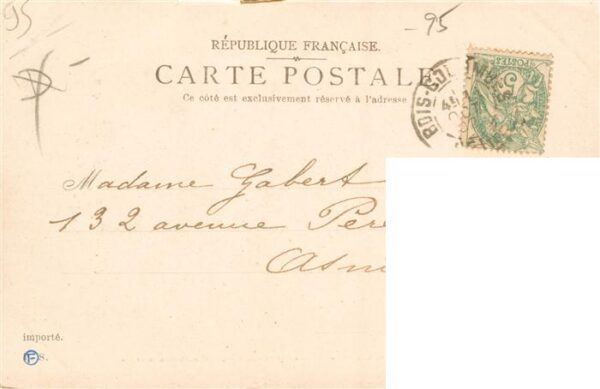 95
-95
RÉPUBLIQUE FRANÇAISE.
CARTE POSTALE
Ce côté est exclusivement réservé à l'adresse
BOIS-CO
POSTES
5
Madame Gabert
132 avenue Per
Asni
importé.
F S.